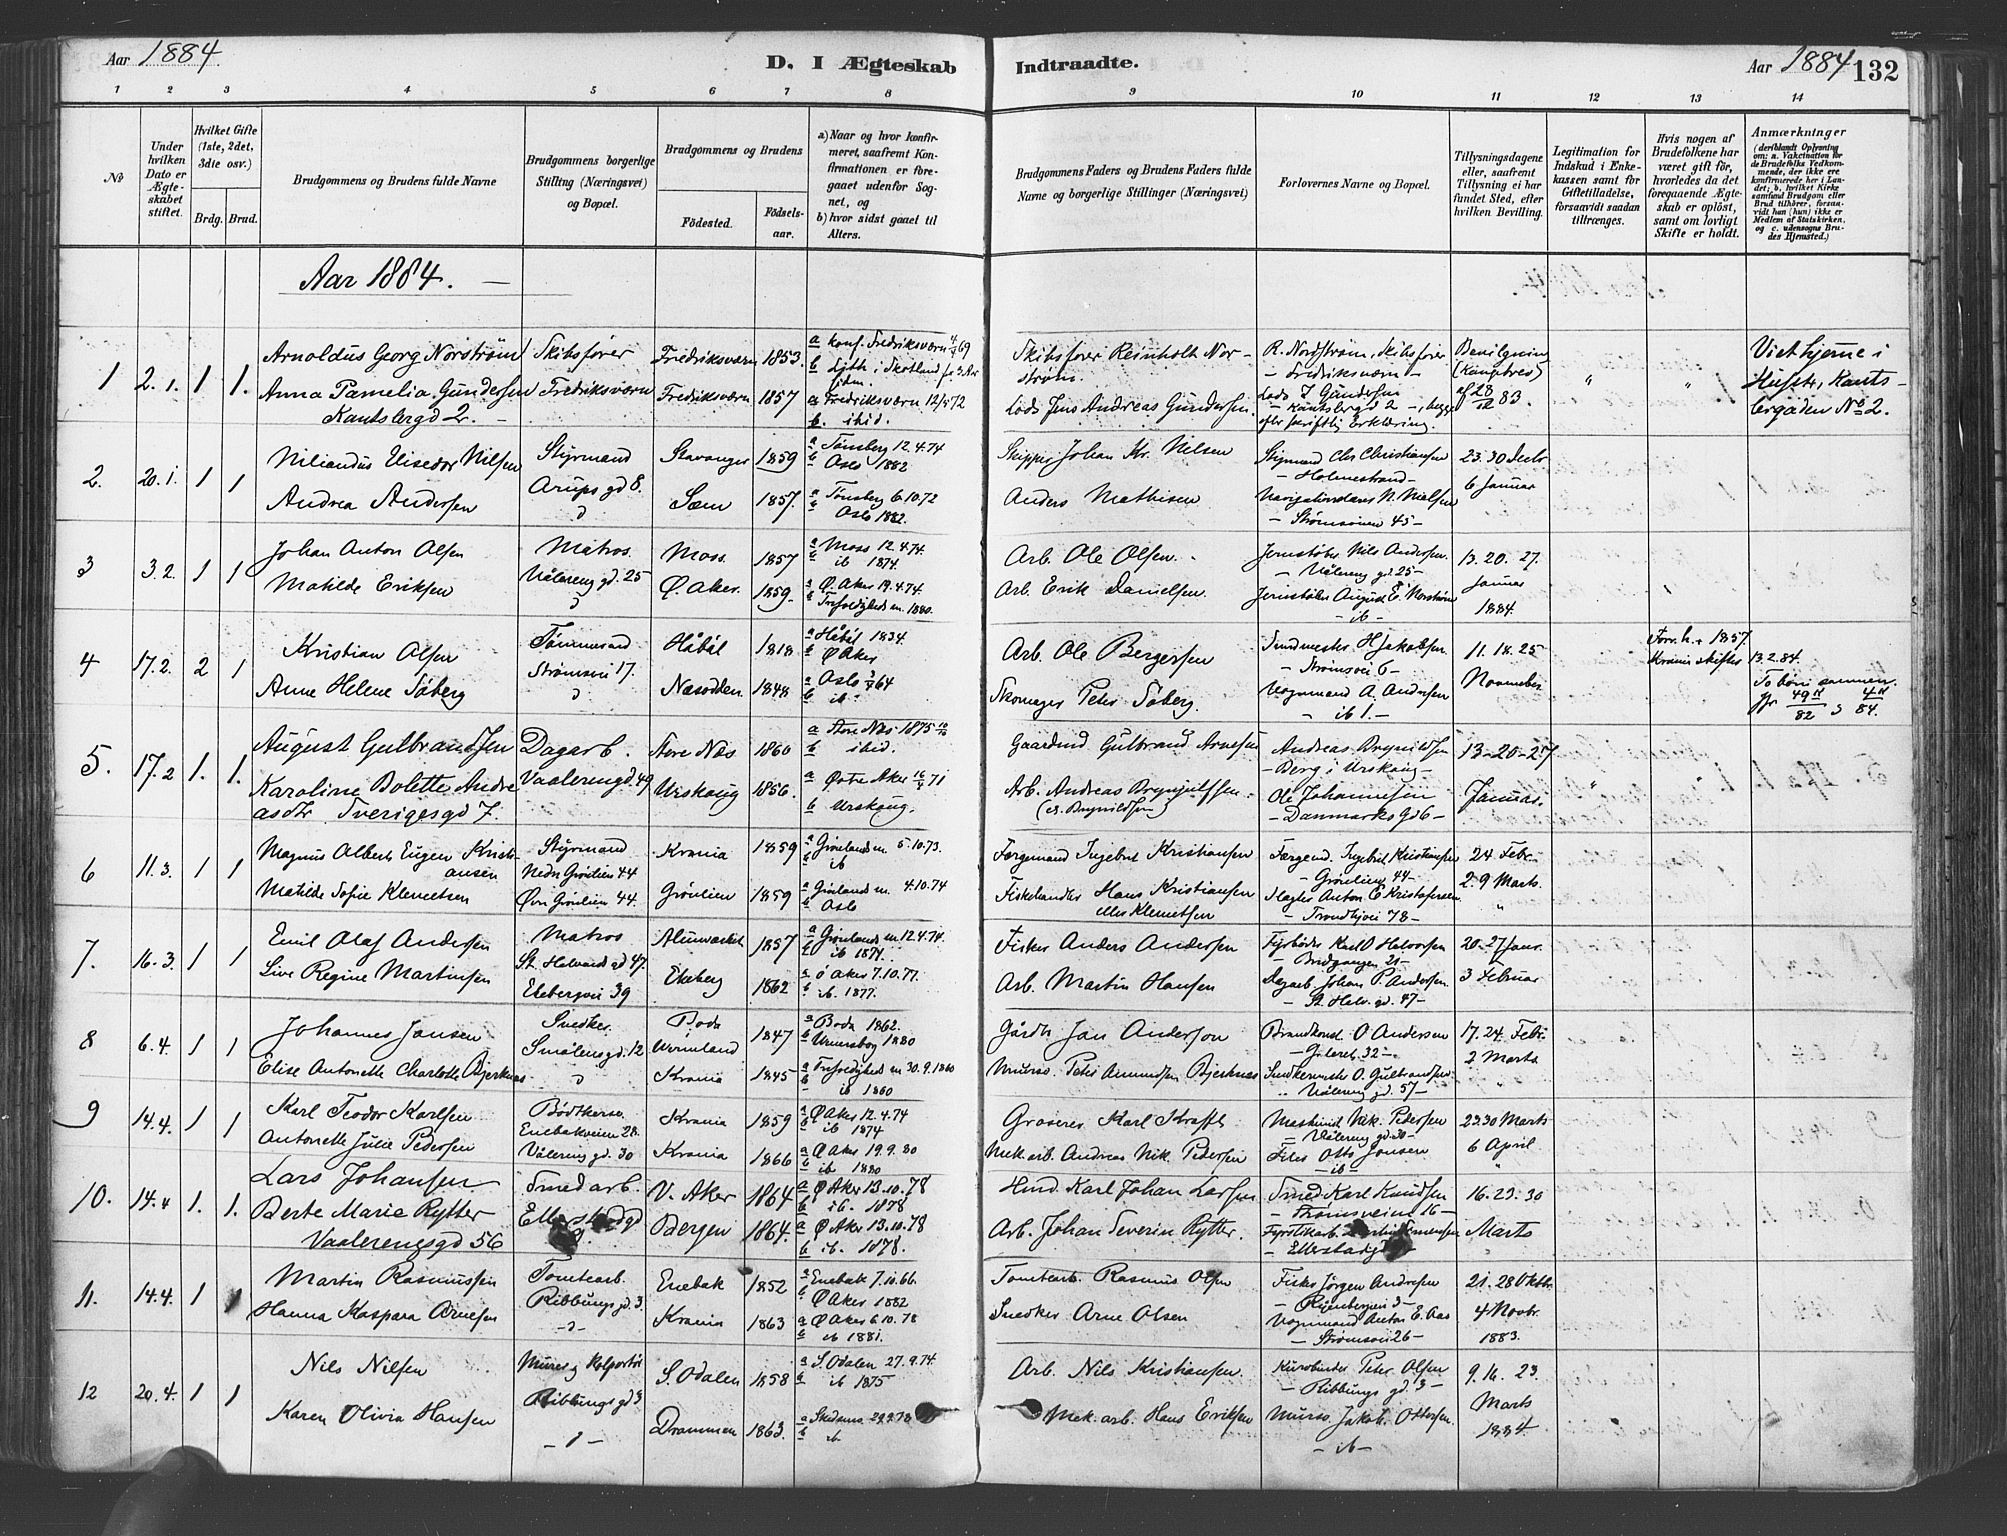 Aar 1884. D. I Ægteskab Indtraadte. Aar 1884 132
1 2 3 4 5 6 7 8 9 10 11 12 13 14
No
Under hvilken Dato er Ægteskabet stiftet.
Hvilket Gifte (1ste, 2det, 3die osv.)
Brdg. Brud.
Brudgommens og Brudens fulde Navne
Brudgommens borgerlige Stilling (Næringsvei) og Bopæl.
Brudgommens og Brudens
Fødested. Fødselsaar.
a) Naar og hvor konfirmeret, saafremt Konfirmationen er foregaaet udenfor Sognet, og
b) hvor sidst gaaet til Alters.
Brudgommens Faders og Brudens Faders fulde Navne og borgerlige Stillinger (Næringsvei)
Forlovernes Navne og Bopæl.
Tillysningsdagene eller, saafremt Tillysning ei har fundet Sted, efter hvilken Bevilling.
Legitimation for Indskud i Enkekassen samt for Giftetilladelse, forsaavidt saadan tiltrænges.
Hvis nogen af Brudefolkene har været gift før, hvorledes da det foregaaende Ægteskab er opløst, samt om lovligt Skifte er holdt.
Anmærkninger (deriblandt Oplysning om: a. Vakcination for de Brudefolks Vedkommende, der ikke ere konfirmerede her i Landet; b. hvilket Kirkesamfund Brudgom eller Brud tilhører, forsaavidt han (hun) ikke er Medlem af Statskirken, og c. udensogns Brudes Hjemsted.)
Aar 1884.
1 2.1. 1 1. Arnoldus Georg Norström Skibsfører Fredriksværn 1853. a konf. Fredriksværn 69 Skibsfører Reinholt Norström. R. Nordstrøm, Skibsfører - Fredriksværn - Bevilgning (Kongebrev) af 28/12 83. " " Viet hjemme i
b Lith i Skotland
Anna Pamelia Gundersen Fredriksværn Fredriksværn 1857 a Fredriksværn 12/5 72 Lods Jens Andreas Gundersen. Lods J Gundersen - Kantsbergd 2 -, begge efter skriftlig Erklæring. Kantsbergaden No 2.
Kantsbergd 2. b. ibid.
2. 20.1. 1 1 Niliandus Elisedor Nilsen Styrmand Stavanger 1859 a Tønsberg 12.4.74 Skipper Johan Kr. Nilsen Styrmand Chr Christiansen 23. 30 Decbr
Arups gd 8. b Oslo 1882 - Holmestrand - 6 Januar
Andrea Andersen d Sem 1857. a Tønsberg 6.10.72 Anders Mathisen Navigationslærer N. Nielsen
b Oslo 1882. - Strømsveien 45 -
3 3.2. 1 1 Johan Anton Olsen Matros. Moss 1857 a Moss 12.4.74. Arb. Ole Olsen. Jernstøber Nils Andersen. 13. 20. 27.
Vålereng gd. 25 b ib 1874. - Vålereng gd 25 - Januar
Matilde Eriksen d Ø. Aker. 1859. a Ø. Aker 19.4.74. Arb. Erik Danielsen. Jernstøber August E. Norstrøm 1884.
b Trefoldighed m. 1880. - ib -
4 17.2. 2 1 Kristian Olsen Tømmermand Håbøl 1818 a Håbøl 1834. Arb. Ole Bergersen H Jakobsen 11. 18. 25 Forr. h. + 1857.
Strømsvei 17. b Ø Aker - Strømsvei 6 - November Krania skifter 13.2.84.
Anne Helene Søberg d Næsodden 1848 a Oslo 64 Skomager Peter Søberg. Vognmand A. Andersen To børn sammen.
b ib. - ib 1. - 49/82 4/84.
5. 17.2 1. 1. August Gulbrandsen Dagarb. Store Næs 1860 a Store Næs 1875 Gaardmd Gulbrand Arnesen Andreas Brynildsen 13-20-27
Vaalerengd 49 b ibid. - Berg i Urskoug - Januar.
Karoline Bolette Andre Urskoug 1856. a Østre Aker 16/4 71 Arb. Andreas Brynjulfsen. Ole Johannesen
asdtr Sverigesgd 7. b Urskoug. (el. Brynildsen) - Danmarks Gd 6 -
6 11.3. 1 1 Magnus Albert Eugen Kristi- Styrmand Krania 1859 a Grønland m. 5.10.73. Færgemand Ingebret Kristiansen Færgem. Ingebret Kristiansen 24 Febr.
ansen Nedr Grønlien 44 b ib - Grønlien 44 - 2. 9 Marts.
Matilde Sofie Klemetsen Øvr Grønlien 44. Grønlien 1859 a Grønland m. 4.10.74 Fiskehandler Hans Kristiansen Slagter Anton E Kristofersen "
b Oslo eller Klemetsen - Trondhjvei 78 -
7. 16.3. 1 1 Emil Olaf Andersen Matros Alunværket 1857 a Grønland m. 12.4.74. Fisker Anders Andersen Fyrbøder Karl O Halvorsen 20. 27 Janr.
St. Halvards gd 47. b ib 1874. - Brudgangen 21 - 3 Februar
Live Regine Martinsen Ekebergvei 39 Ekeberg 1862 a Ø Aker 7.10.77. Arb. Martin Hansen Dagarb. Johan P. Andersen.
b ib. 1877. - St Halv. gd. 47 -
8 6.4. 1 1 Johannes Jansen Snedker. Boda 1847 a Boda 1862. Gårdb. Jan Anderson Brandkonst O Andersen 17. 24. Febr.
Smålens gd. 12 Wermland 1880 - Galeret 32 - 2 Marts
Elise Antonette Charlotte Bjerknæs d Krania 1845 a Trefoldighed m 30.9.1860 Murer Peter Amundsen Bjerknæs Snedkermester O. Gulbrandsen
ib 1860 Vålereng gd. 57 -
9 14.4. 1 1 Karl Teodor Karlsen Bødtkersv. Krania 1859 a Ø Aker 12.4.74 Groserer Karl Krafft Maskinist Nik. Pedersen 23 30 Marts
Enebakveien 28. b ib 1874 - Vålereng gd. 30 - 6 April
Antonette Julie Pedersen Vålereng gd. 30 Krania 1866 a Ø Aker 19.9.80 Mek arb. Andreas Nik. Pedersen Filer Otto Jonsen
b ib 1880 - ib -
10. 14.4 1. 1. Lars Johansen Smed arb. V. Aker 1864 a Ø Aker 13.10.78 Hmd. Karl Johan Larsen Smed Karl Knudsen 16. 23. 30
Ellestadgd b ib. 1878 - Strømsveien 16 - Marts
Berte Marie Rytter Bergen 1864. a Ø Aker 13.10.78 Arb. Johan Severin Rytter. Fyrstikarb.
Vaalerengsgd 56 b ib. 1878. - Ellestadgd
11. 14.4. 1 1 Martin Rasmussen Tomtearb. Enebak 1852 a Enebak 7.10.66 Tomtearb. Rasmus Olsen Fisker Jørgen Andersen 21. 28 Oktbr
Ribbungs gd. 3. b Ø Aker 1882 4 Novbr.
Hanna Kaspara Arnesen - d - Krania 1863 a Ø Aker 6.10.78 Snedker Arne Olsen Vognmand Anton E. Aas 1883.
b ib 1881. - Strømsvei 26 -
12 20.4. 1 1 Nils Nilsen Murer og Kolportør S. Odalen 1858 a S. Odalen 27.9.74. Arb. Nils Kristiansen Peter Olsen 9. 16. 23
Ribbungs gd 3 b ib 1875 - Ribbungs gd. 3 - Marts
Karen Olivia Hansen Drammen 1863. a 29.9.78 Mek. arb. Hans Eriksen Murer Jakob Ottersen. 1884.
b ib - ib -